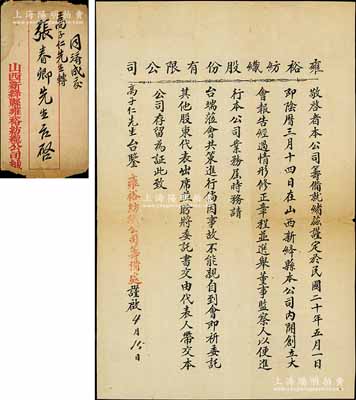 同濟成交
高子仁先生轉
張春卿先生台啓
山西新絳縣雍裕紡織公司緘
雍裕紡織股份有限公司
敬啓者本公司籌備就緒茲謹定於民國二十年五月一日
即陰曆三月十四日在山西新絳縣本公司內開創立大
會報告經過情形修正章程並選舉董事監察人以便進
行本公司業務屆時務請
台端蒞會共策進行倘因事故不能親自到會即祈委託
其他股東代表出席並盼將委託書交由代表人帶交本
公司存留為証此致
高子仁先生台鑒
雍裕紡織公司籌備處謹啟 4月15日
上海陽明拍賣